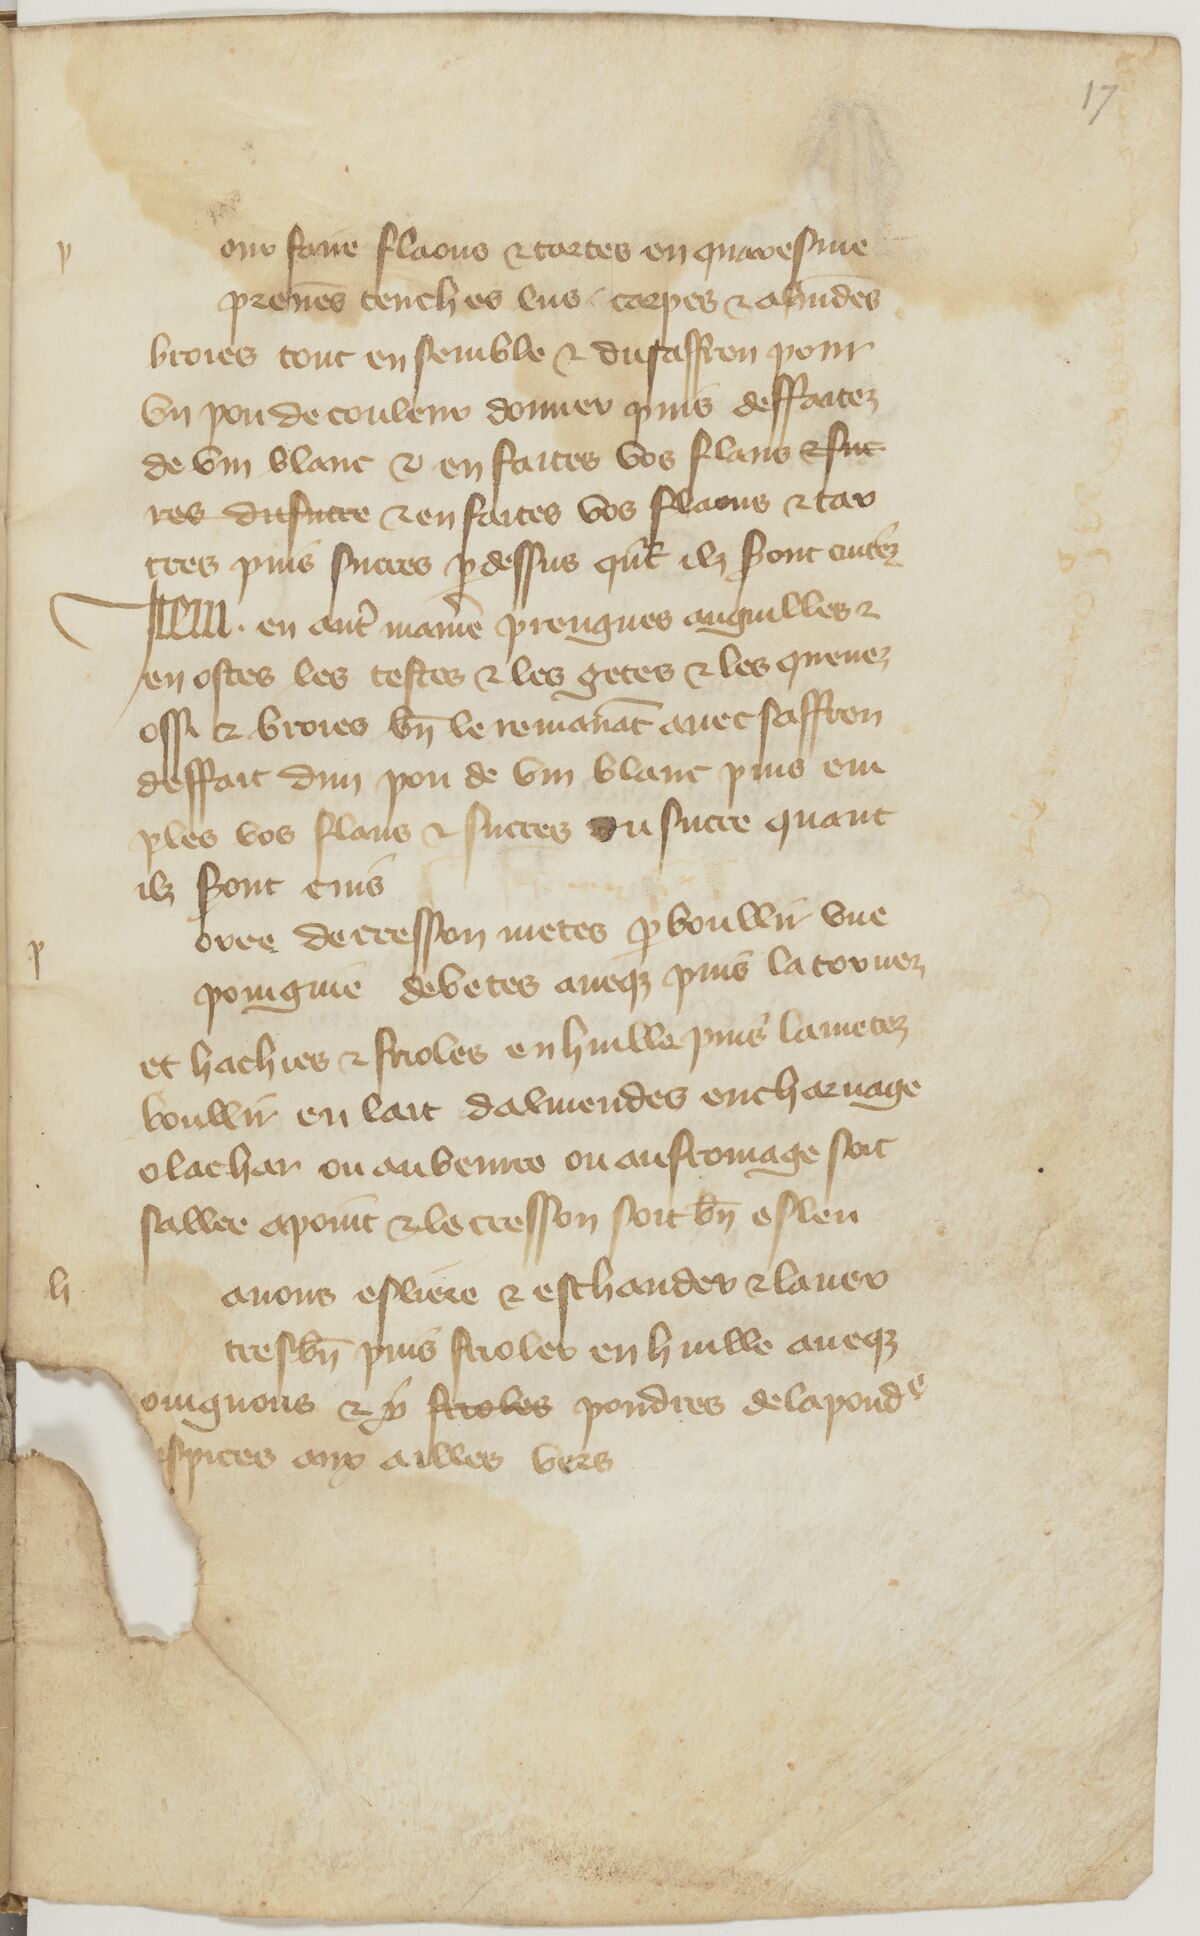 17
p our faire flaons & tartes en quaresme
prenes tenches lus carpes & almādes
broies tout ensemble & du saffren pour
un pou de couleur donner puis deffaitez
de vin blanc & en faites vos flans & suc
res du sucre & en faites vos flaons & tar
tres puis sucres p dessus qnt ilz sont cuitez
Item. en aut maniē prengnes anguilles &
en ostes les testes & les getes & les queuez
ossi & broies bn le remanāt avec saffren
deffait dun pou de vin blanc puis em
ples vos flans & sucres du sucre quant
ilz sont cuis
p oree de cresson metes pboullir une
poingnie de betes aueqz puis la tornez
et hachies & frioles en huille puis la metez
boullir en lait dalmendes en charnage
o la char ou au beurre ou au fromage soit
sallee a point & le cresson soit bn esleu
h anons esliere & eschauder & laver
tres bn puis frioler en huille aueqz
oingnons & p frioles poudres de la poudre
espices aux ailles vers